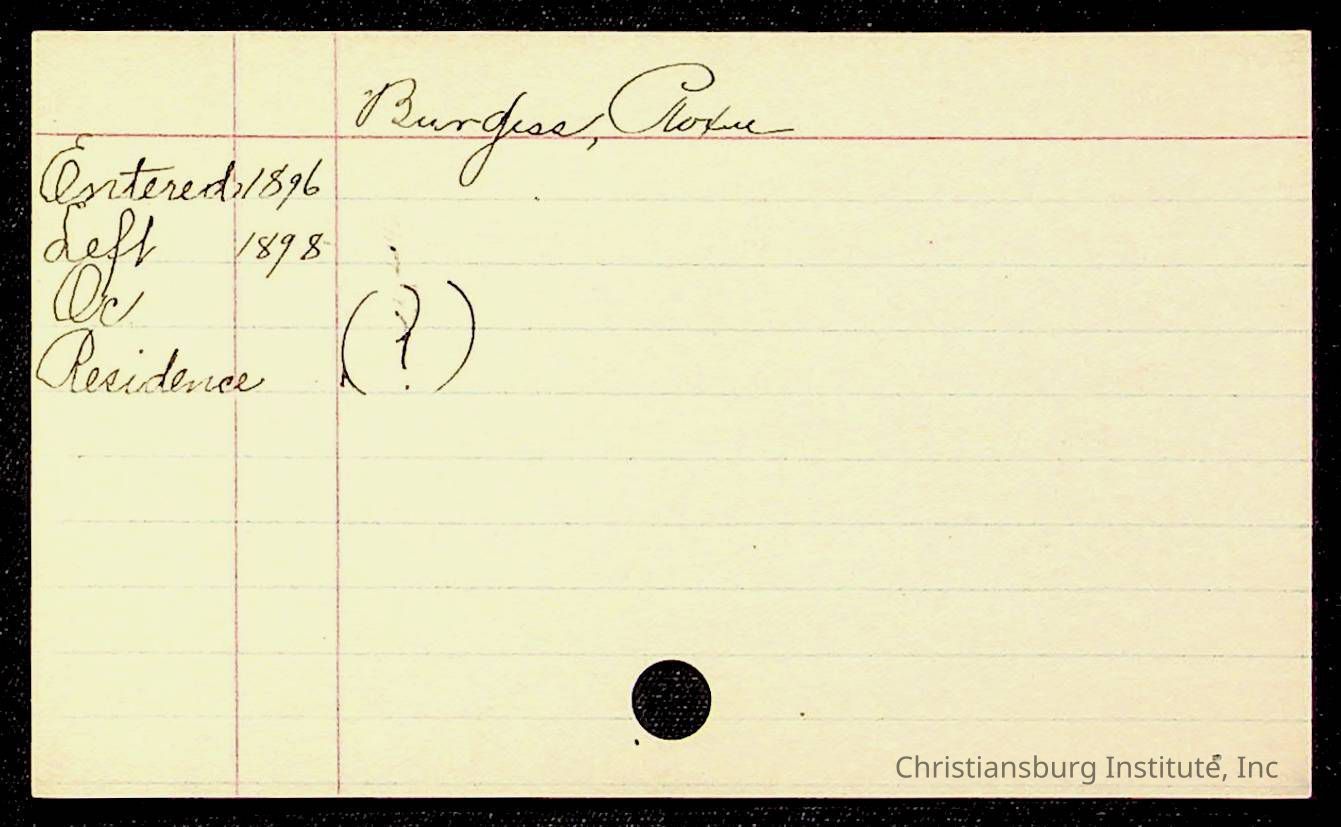 Burgess, Roxie
Entered 1896
Left 1898
Oc
Residence (?)
Christiansburg Institute, Inc